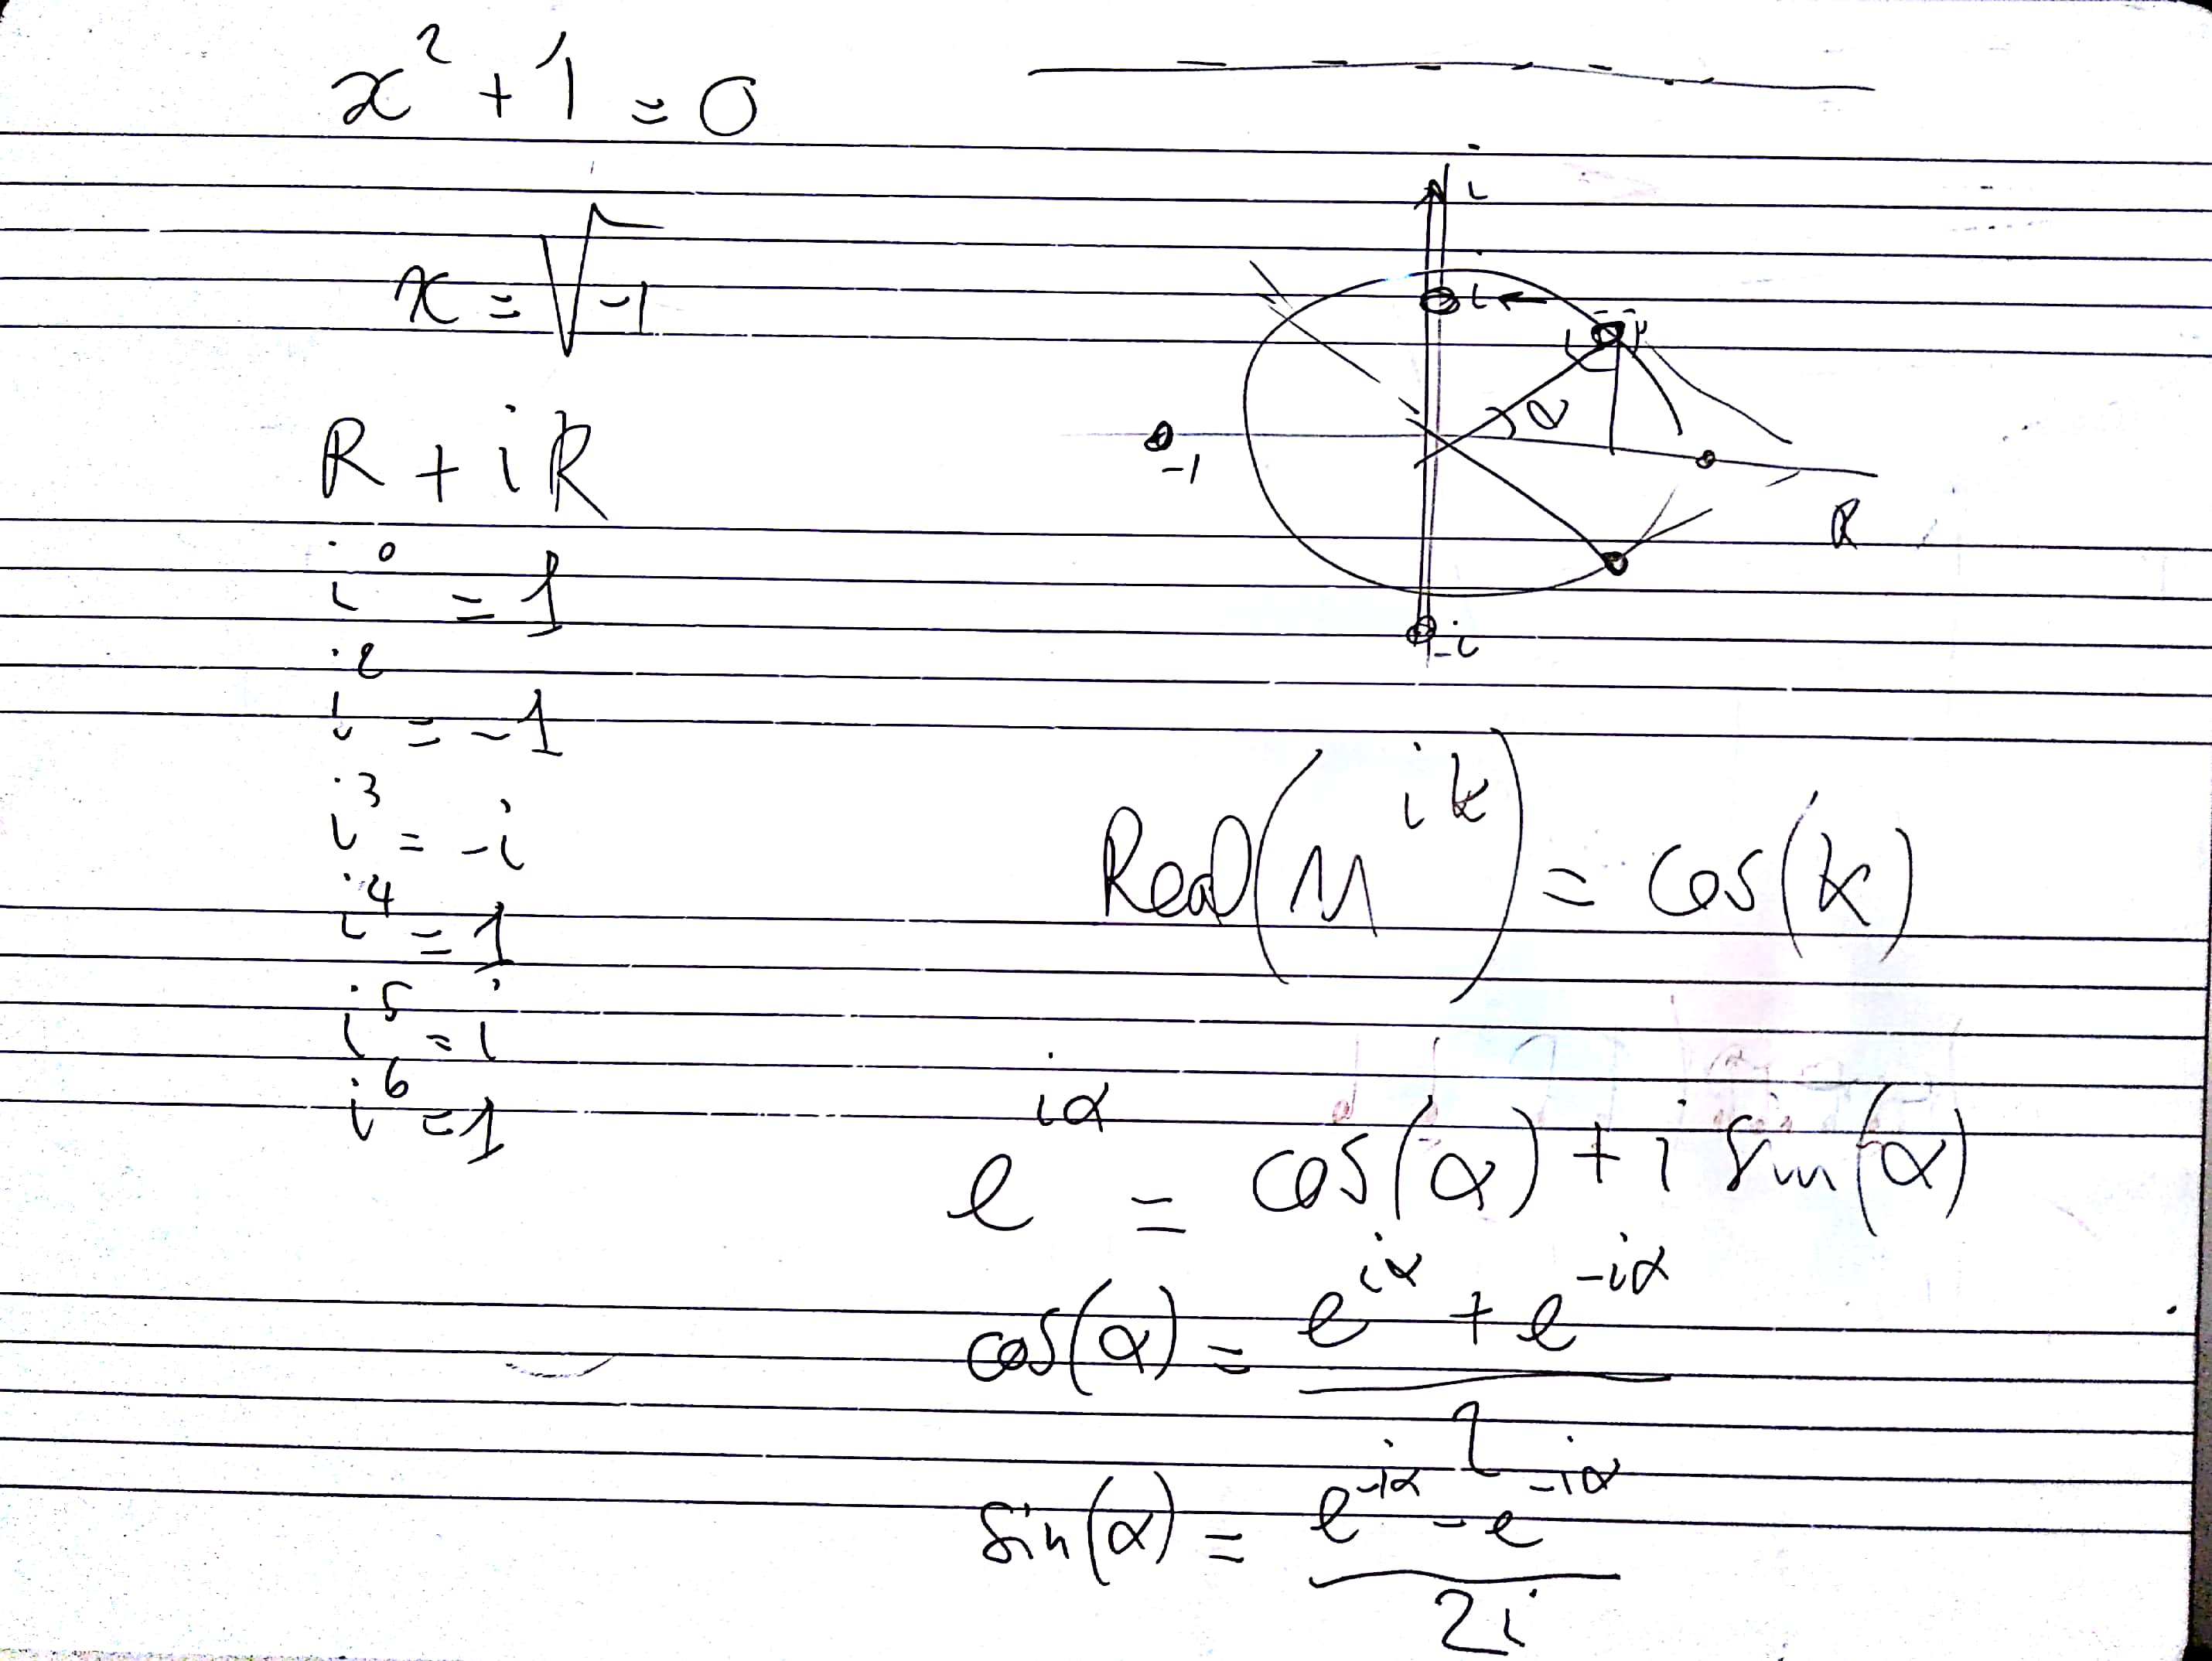 x² + 1 = 0
x = √-1
R + iR
i⁰ = 1
i² = -1
i³ = -i
i⁴ = 1
i⁵ = i
i⁶ = 1
i
i
α
-1
R
-i
Real(M^{ik}) = cos(k)
e^{iα} = cos(α) + i sin(α)
cos(α) = (e^{iα} + e^{-iα}) / 2
sin(α) = (e^{-iα} - e^{-iα}) / 2i